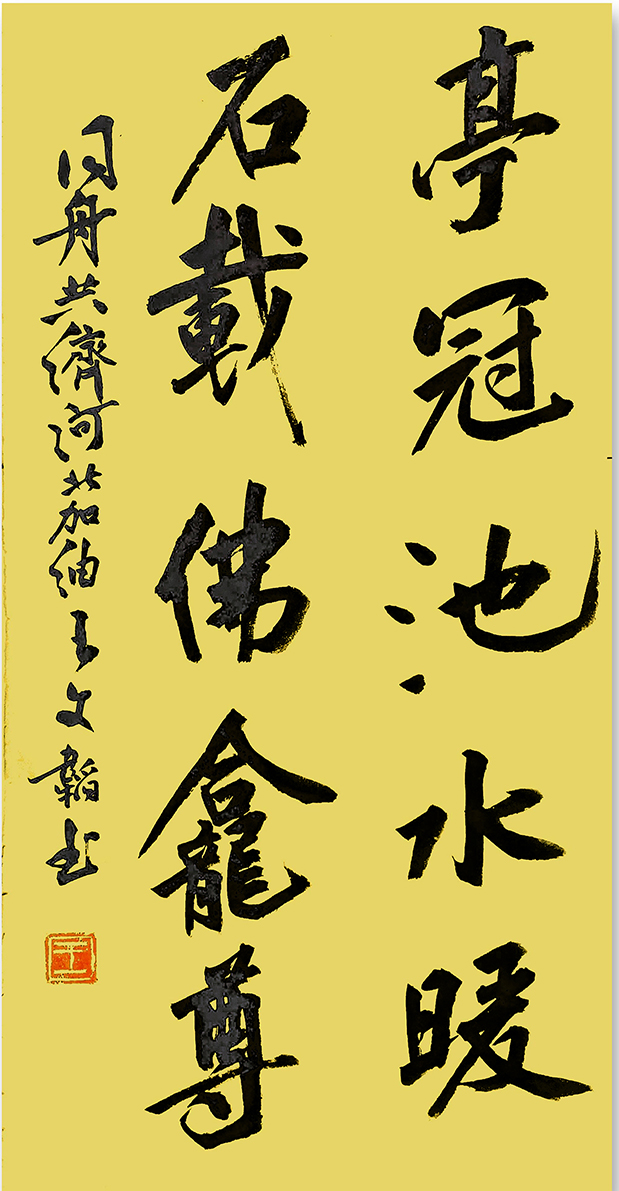 亭冠池水暖
石載佛龕尊
同舟共濟河北加油王文韜书
王